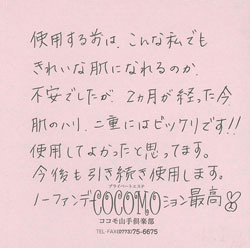 使用する前は、こんな私でも
きれいな肌になれるのか、
不安でしたが、2ヵ月が経った今
肌のハリ、二重にはビックリです!!
使用してよかったと思ってます。
今後も引き続き使用します。
ノーファンデーション最高
プライベートエステ
COCOMO
ココモ山手倶楽部
TEL・FAX(0773)75-6675